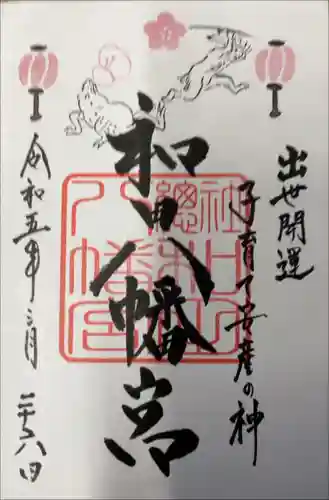 出世開運
子育て安産の神
和田八幡宮
令和五年三月二十八日